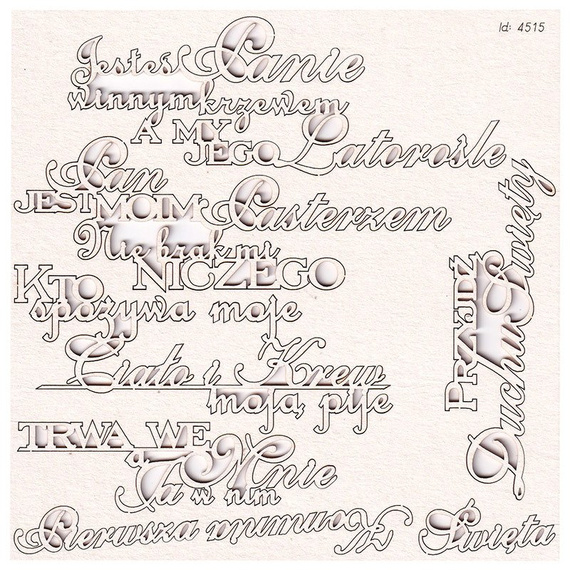 Id: 4515
Jesteś Panie
winnym krzewem
A MY
JEGO Latorośle
Pan
JEST MOIM Pasterzem
Nie brak mi
NICZEGO
KTO
spożywa moje
Ciało i Krew
moją pije
TRWA WE
Mnie
Ja w nim
PRZYJDŹ
Duchu Święty
Pierwsza Komunia Święta